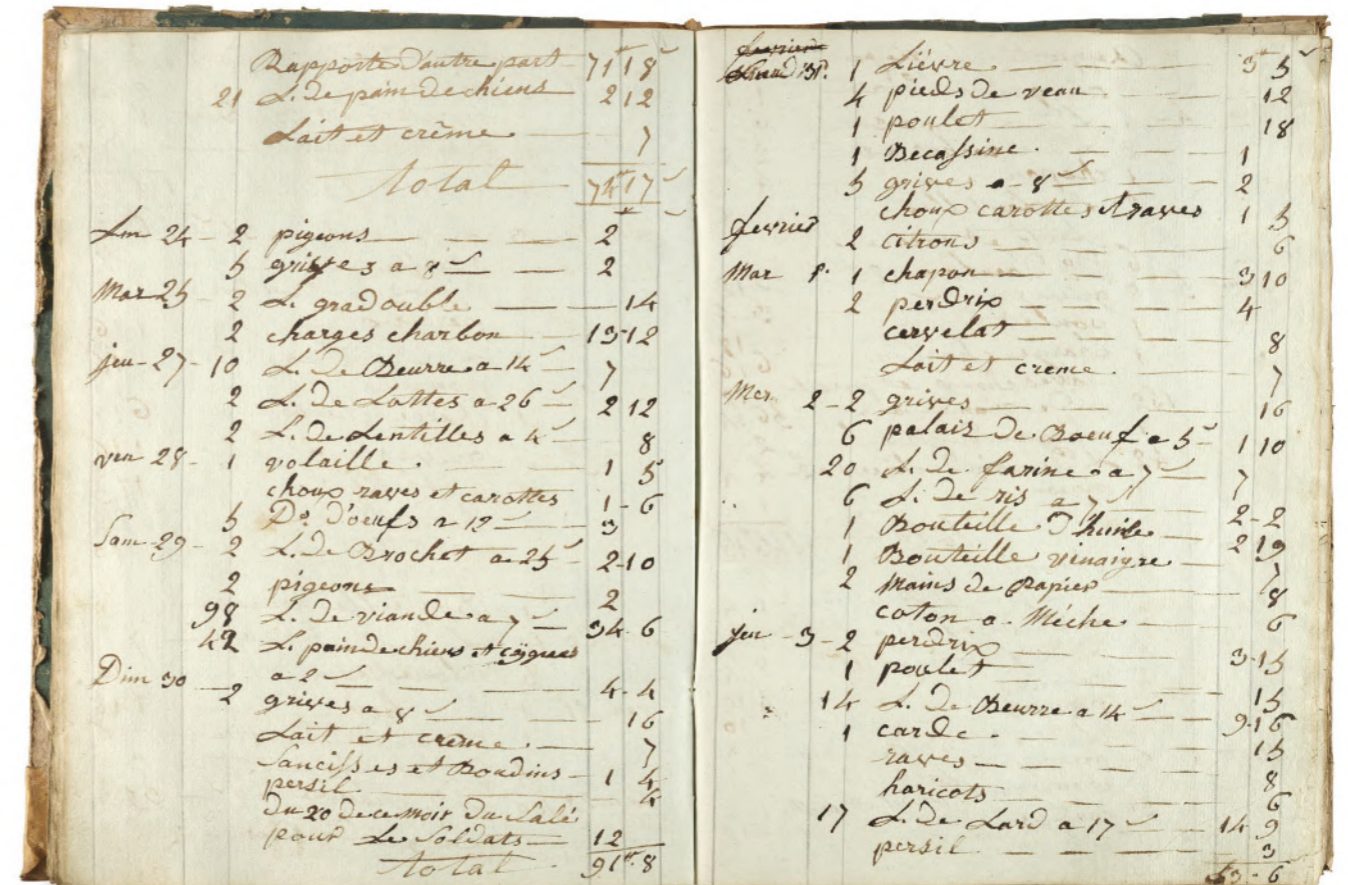 Rapporte d'autre part 71 18
21 L. de pain de chiens 2 12
Lait et crême 7
Total 74 17
Lun 24 - 2 pigeons 2
5 grives a 8 2
Mar 25 2 L. gradouble 14
2 charges charbon 13-12
jeu-27-10 L. de Beurre a 14 7
2 L. de Lottes a 26 2 12
2 L. de Lentilles a 4 8
ven 28- 1 volaille. 1 5
choux raves et carottes 1-6
5 Do. d'oeufs a 12 3
Sam-29- 2 L. de Brochet a 25 2-10
2 pigeons 2
98 L. de viande a 7 34-6
42 L. pain de chiens et
a 2 4-4
Dim 30 - 2 grives a 8 16
Lait et crême. 7
Saucisses et Boudins 1 4
persil 4
du 20 de ce mois du Salé
pour Le Soldats 12
Total 91 8
fevrier
Lundi 31. 1 Lièvre 3 5
4 pieds de veau 12
1 poulet 18
1 Becassine. 1
5 grives a 8 2
choux carottes et raves 1 5
fevrier 2 citrons 6
Mar 1. 1 chapon 3 10
2 perdrix 4
cervelat 8
Lait et creme. 7
Mer 2-2 grives 16
6 palais de Boeuf a 5 1 10
20 L. de farine a 7 7
6 L. de ris a 7 2-2
1 Bouteille d'huile 2 19
1 Bouteille vinaigre 7
2 Mains de Papier 8
coton a Méche 6
jeu-3-2 perdrix 3-15
1 poulet 15
14 L. de Beurre a 14 9-16
1 carde. 15
raves 8
haricots 6
17 L. de Lard a 17 14 9
persil 3
53-6